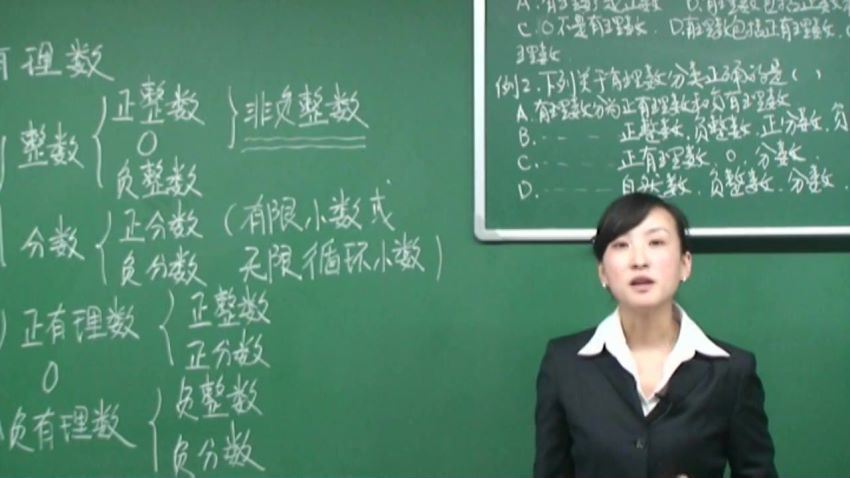 有理数
整数
正整数
0
负整数
非负整数
分数
正分数（有限小数或
负分数 无限循环小数）
正有理数
正整数
正分数
0
负有理数
负整数
负分数
C. 0不是有理数. D.有理数包括正有理数.
理数
例2.下列关于有理数分类正确的是（ ）
A.有理数分为正有理数和负有理数
B. 正整数.负整数.正分数.负
C. 正有理数.0.分数.
D. 自然数.负整数.分数.